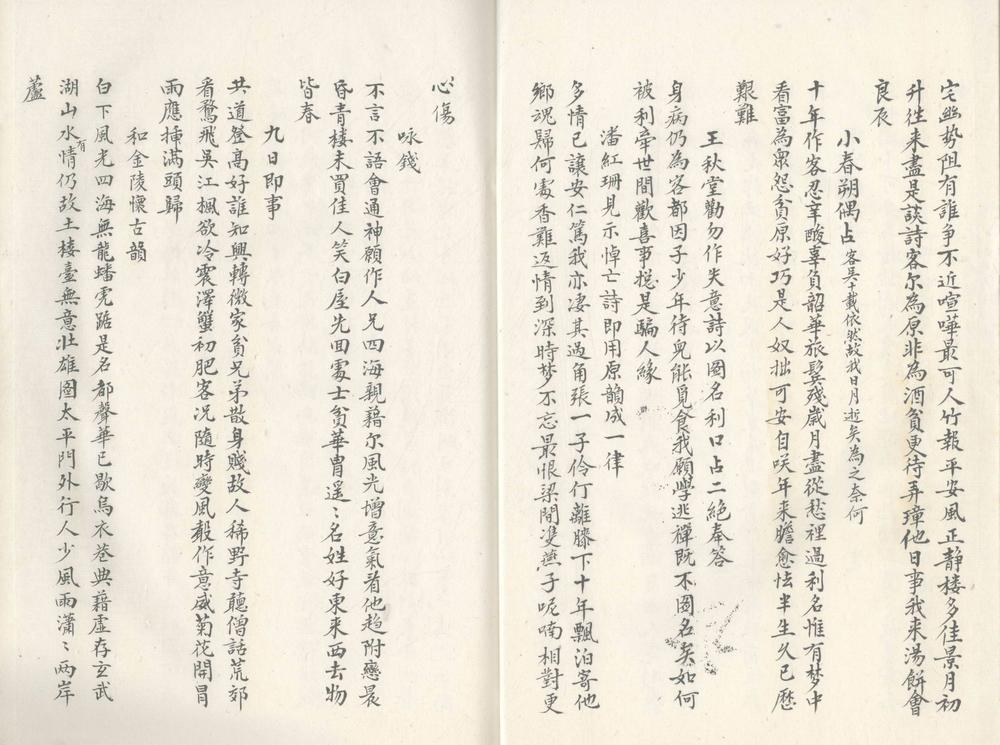 宅幽势阻有誰争不近喧嘩最可人竹報平安風正静楼多佳景月初
升往来盡是談詩客尔為原非為酒貧更待弄璋他日事我来湯餅會
良辰
小春朔偶占客吳十載依然故我日月逝矣為之奈何
十年作客忍辛酸辜負韶華旅鬓殘歲月盡從愁裡過利名惟有梦中
看富為衆怨貧原好巧是人奴拙可安自咲年来膽愈怯半生久已歷
艱難
王秋堂勸勿作失意詩以圖名利口占二絶奉答
身病仍為客都因子少年待兒能覓食我願學逃禪既不圖名矣如何
被利牵世間歡喜事捴是騙人緣
潘紅珊見示悼亡詩即用原韻成一律
多情已讓安仁篤我亦凄其過角張一子伶仃離膝下十年飄泊寄他
鄉魂歸何處香難返情到深時梦不忘最恨梁間雙燕子呢喃相對更
心傷
咏錢
不言不語會通神願作人兄四海親藉尔風光增意氣看他趋附戀晨
昏青楼未買佳人笑白屋先回處士貧華冑遥〻名姓好東来西去物
皆春
九日即事
共道登高好誰知興轉微家貧兄弟散身賤故人稀野寺聽僧話荒郊
看鶩飛吳江楓欲冷震澤蟹初肥客况隨時變風穀作意威菊花開冒
雨應揷滿頭歸
和金陵懷古韻
白下風光四海無龍蟠虎踞是名都聲華已歇烏衣巷典藉虚存玄武
湖山水有情仍故土楼臺無意壮雄圖太平門外行人少風雨瀟〻两岸
蘆